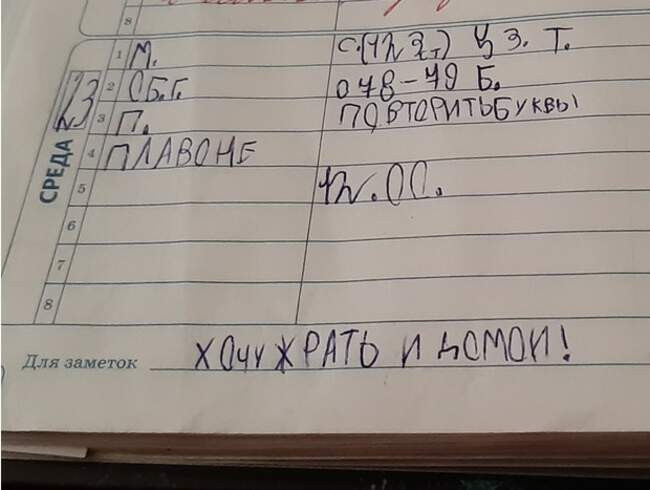 8
СРЕДА 23
1 М. С.(
2 СБ.Г. 048-49 Б.
3 П. ПОВТОРИТЬ БУКВЫ
4 ПЛАВОНЕ
5 12.00.
6
7
8
Для заметок ХОЧУ ЖРАТЬ И ДОМОЙ!